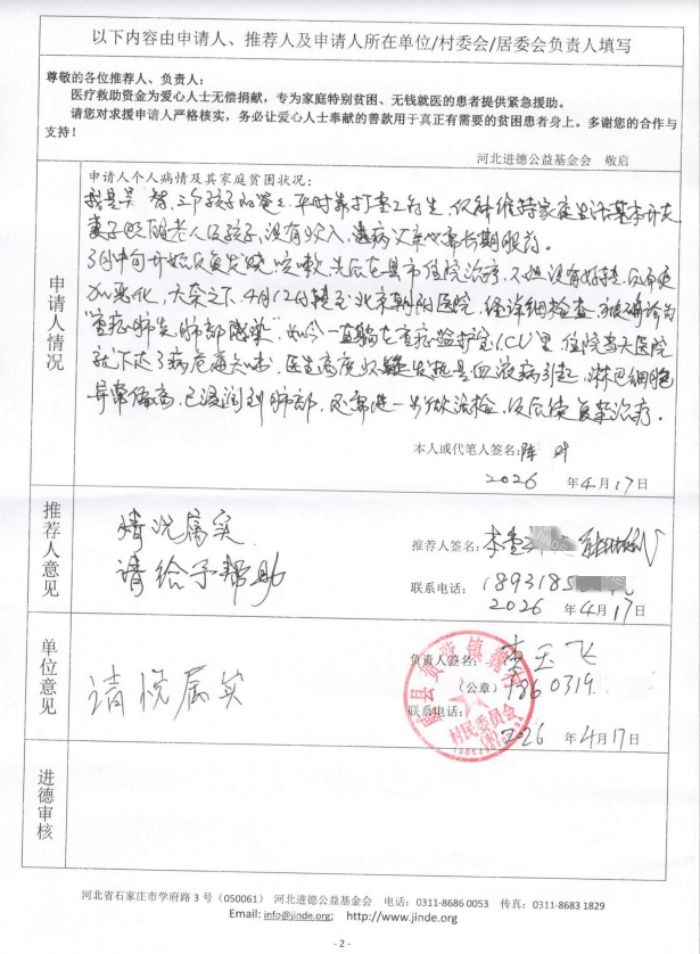 以下内容由申请人、推荐人及申请人所在单位/村委会/居委会负责人填写
尊敬的各位推荐人、负责人：
医疗救助资金为爱心人士无偿捐献，专为家庭特别贫困、无钱就医的患者提供紧急援助。
请您对求援申请人严格核实，务必让爱心人士奉献的善款用于真正有需要的贫困患者身上。多谢您的合作与
支持！
河北进德公益基金会 敬启
申请人情况
申请人个人病情及其家庭贫困状况：
我是吴 智，三个孩子的爸爸，平时靠打零工为生，仅能维持家庭生活基本开支
妻子照顾老人及孩子，没有收入，患病父亲也需长期服药。
3月中旬开始反复发烧，咳嗽，先后在县市住院治疗，不但没有好转，反而更
加恶化，无奈之下，4月12日转至北京朝阳医院，经详细检查，被确诊为
"重症肺炎，肺部感染"，如今一直躺在重症监护室ICU里，住院当天医院
就下达了病危通知书，医生高度怀疑发热是血液病引起，淋巴细胞
异常偏高，已浸润到肺部，还需进一步做活检，及后续复杂治疗。
本人或代笔人签名：陈 叶
2026 年4月17日
推荐人意见
情况属实
请给予帮助
推荐人签名：李
联系电话：1893185
2026 年4月17日
单位意见
情况属实
负责人签名：李玉飞
（公章）
1860319
联系电话：
村民委员会
2026 年4月17日
进德审核
河北省石家庄市学府路 3 号（050061） 河北进德公益基金会 电话：0311-8686 0053 传真：0311-8683 1829
Email: info@jinde.org; http://www.jinde.org
- 2 -